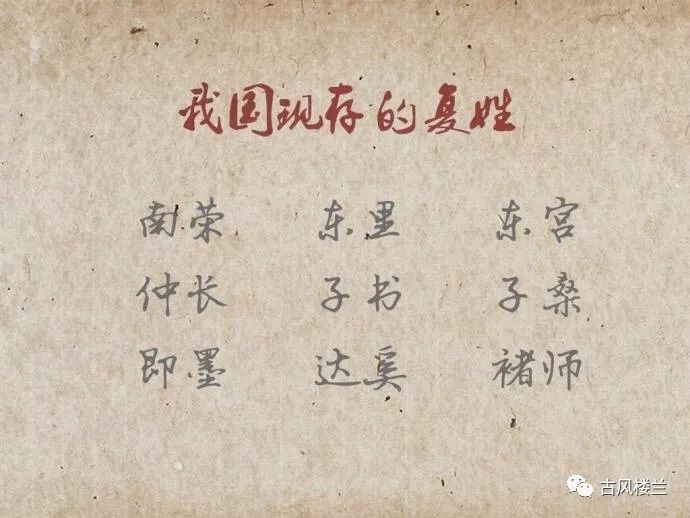 我国现存的复姓
南荣 东里 东宫
仲长 子书 子桑
即墨 达奚 褚师
古风楼兰